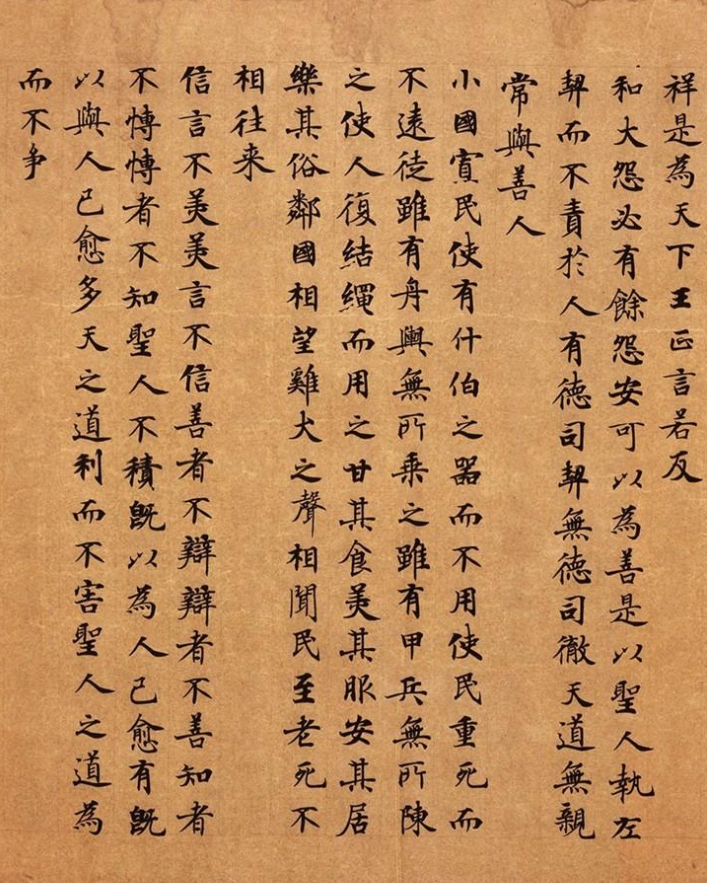 祥是為天下王正言若反
和大怨必有餘怨安可以為善是以聖人執左
契而不責於人有德司契無德司徹天道無親
常與善人
小國寡民使有什伯之器而不用使民重死而
不遠徒雖有舟輿無所乗之雖有甲兵無所陳
之使人復結繩而用之甘其食美其服安其居
樂其俗鄰國相望雞犬之聲相聞民至老死不
相往来
信言不美美言不信善者不辯辯者不善知者
不博博者不知聖人不積既以為人己愈有既
以與人己愈多天之道利而不害聖人之道為
而不争